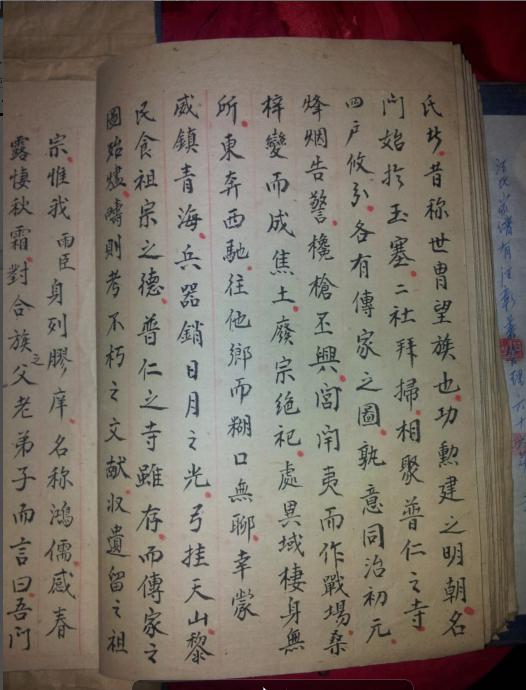 氏者昔称世胄望族也功勲建之明朝名
门始扵玉塞二社拜掃相聚普仁之寺
四戸攸分各有傳家之圖孰意同治初元
烽烟告警欃槍丕興閭閈夷而作戰場桑
梓變而成焦土廢宗绝祀處異域棲身無
所東奔西馳往他鄉而糊口無聊幸蒙
威鎮青海兵器銷日月之光弓挂天山黎
民食祖宗之德普仁之寺雖存而傳家之
圖殆燼疇則考不朽之文献收遺留之祖
宗惟我雨臣身列膠庠名称鴻儒感春
露悽秋霜對合族之父老弟子而言曰吾门